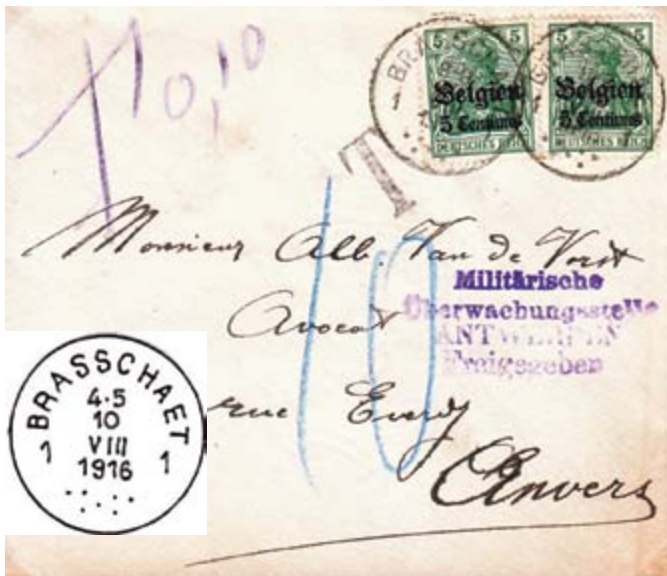 0,10
5 5
Belgien
5 Centimes
DEUTSCHES REICH
5 5
Belgien
5 Centimes
DEUTSCHES REICH
T
10
Monsieur Alb. Van de Vorst
Avocat
rue
Anvers
Militärische
Überwachungsstelle
ANTWERPEN
Freigegeben
BRASSCHAET
4-5
10
VIII
1916
1 1